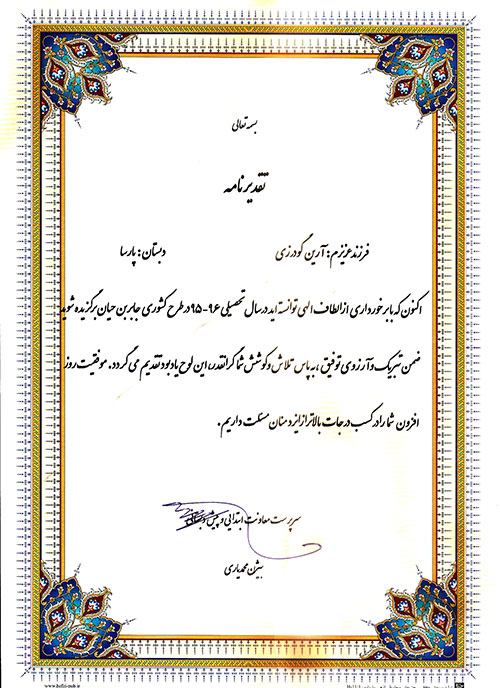 بسمه تعالی
تقدیرنامه
فرزند عزیزم: آرین گودرزی دبستان: پارسا
اکنون که با برخورداری از الطاف الهی توانسته اید در سال تحصیلی ۹۶-۹۵ در طرح کشوری جابر بن حیان برگزیده شوید
ضمن تبریک و آرزوی توفیق، به پاس تلاش و کوشش شما گرانقدر، این لوح یادبود تقدیم می گردد. موفقیت روز
افزون شما را در کسب درجات بالاتر از ایزد منان مسئلت داریم.
سرپرست معاونت ابتدایی و پیش دبستانی
بیژن محمدیاری
www.hafizi-pub.ir